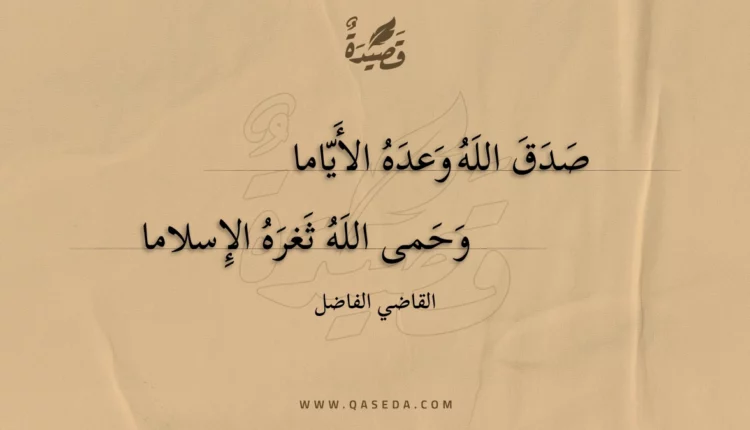 قَصِيدَةٌ
صَدَقَ اللَهُ وَعدَهُ الأَيّاما
وَحَمى اللَهُ ثَغرَهُ الإِسلاما
القاضي الفاضل
WWW.QASEDA.COM